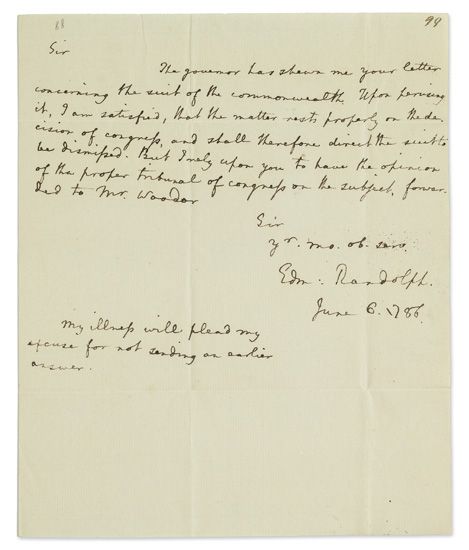 88
99
Sir
The governor has shewn me your letter
concerning the suit of the commonwealth. Upon perusing
it, I am satisfied, that the matter rests properly on the de-
cision of congress, and shall therefore direct the suit to
be dismissed. But I rely upon you to have the opinion
of the proper tribunal of congress on the subject, forwar-
ded to Mr.
Sir
yr. mo. ob. serv.
Edm: Randolph.
June 6. 1786.
My illness will plead my
excuse for not sending an earlier
answer.